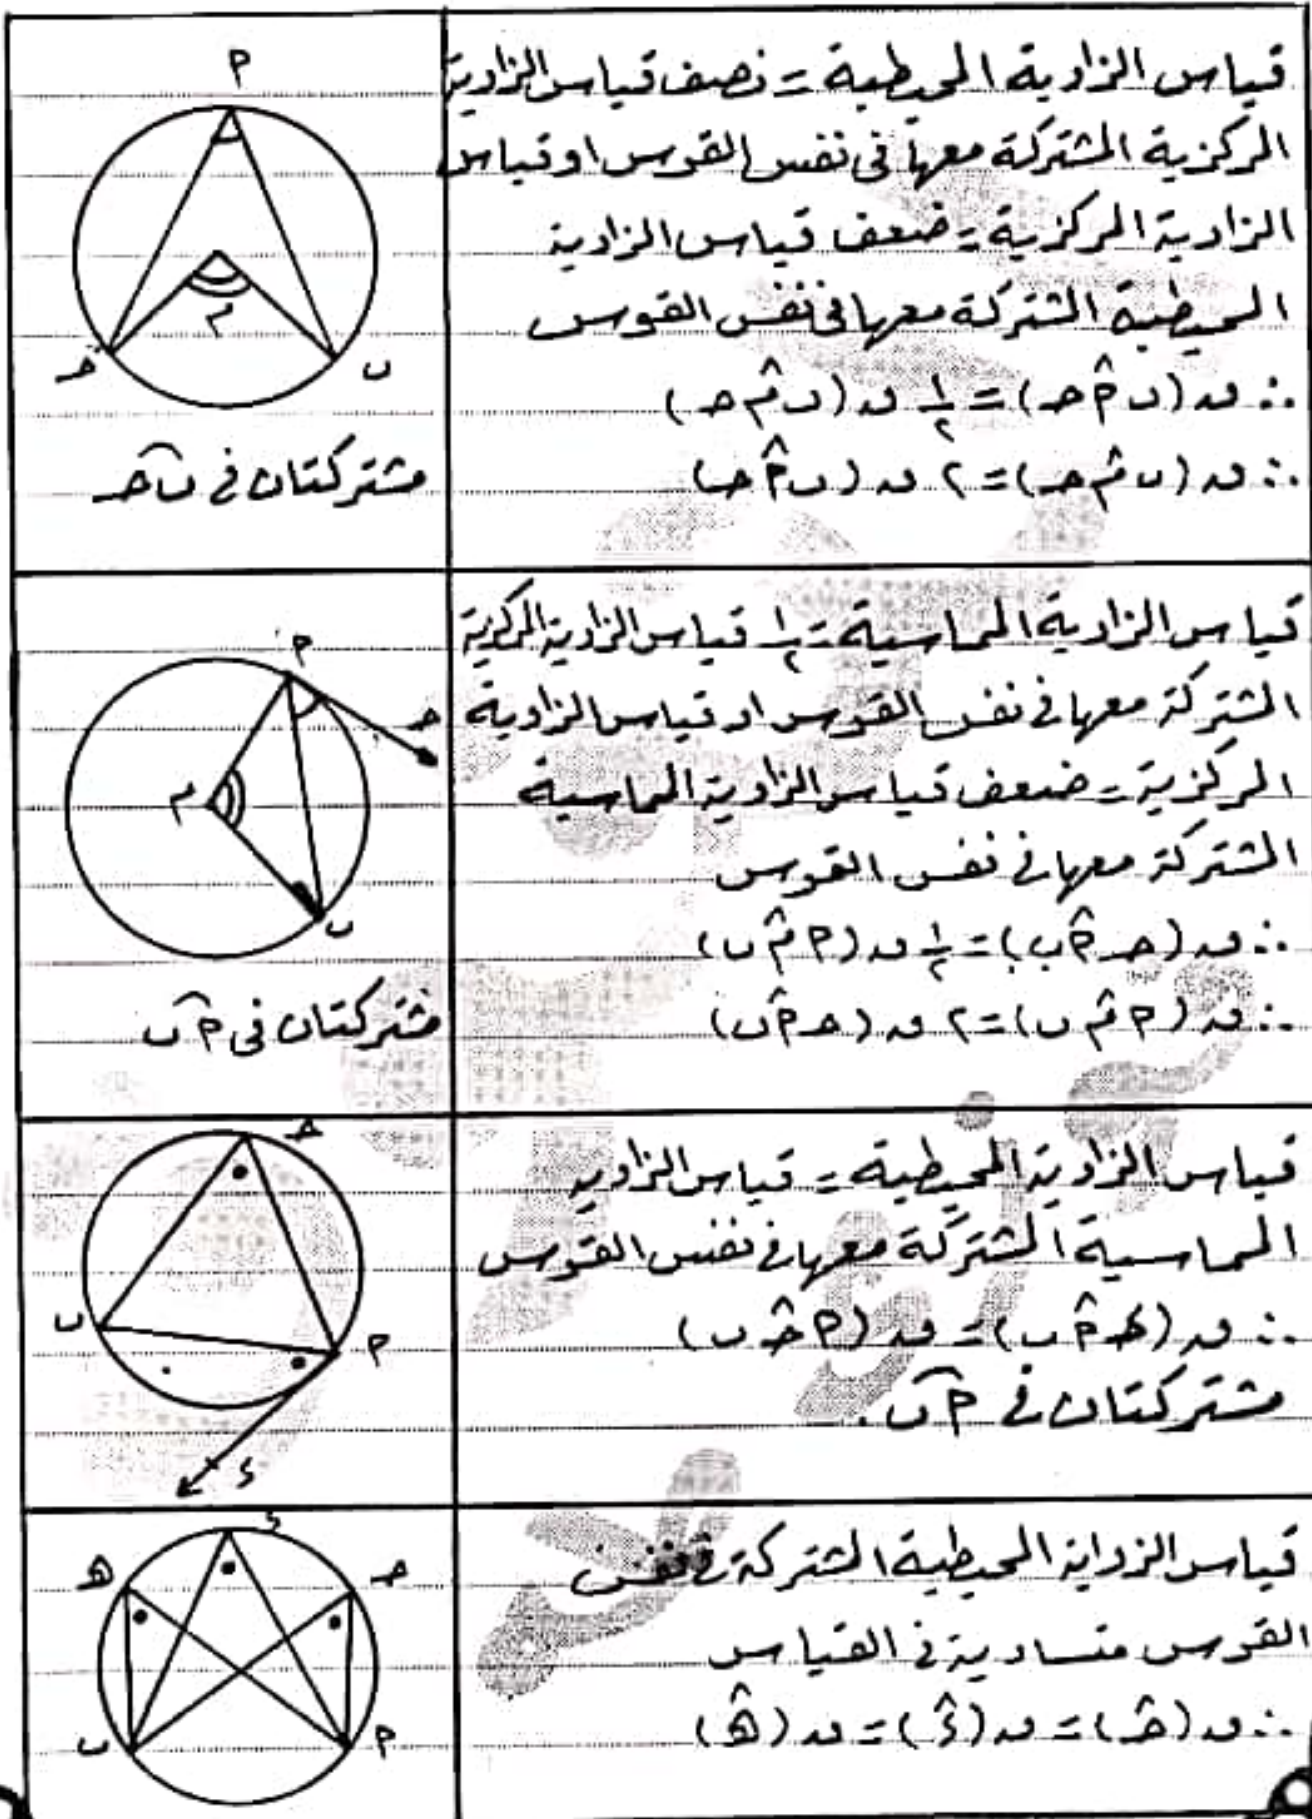 قياس الزاوية المحيطية = نصف قياس الزاوية
المركزية المشتركة معها في نفس القوس او قياس
الزاوية المركزية = ضعف قياس الزاوية
المحيطية المشتركة معها في نفس القوس
∴ ق (ب م̂ ح) = ٢ ق (ب أ̂ ح)
∴ ق (ب أ̂ ح) = ١/٢ ق (ب م̂ ح)
أ
م
ح
ب
مشتركتان في ب ح
قياس الزاوية المماسية = ١/٢ قياس الزاوية المركزية
المشتركة معها في نفس القوس او قياس الزاوية
المركزية = ضعف قياس الزاوية المماسية
المشتركة معها في نفس القوس
∴ ق (ح أ̂ ب) = ١/٢ ق (أ م̂ ب)
∴ ق (أ م̂ ب) = ٢ ق (ح أ̂ ب)
أ
ح
م
ب
مشتركتان في أ ب
قياس الزاوية المحيطية = قياس الزاوية
المماسية المشتركة معها في نفس القوس
∴ ق (د أ̂ ب) = ق (أ ح̂ ب)
مشتركتان في أ ب .
ح
ب
أ
د
قياس الزواية المحيطية المشتركة في نفس
القوس متساوية في القياس
∴ ق (ح̂) = ق (د̂) = ق (ه̂)
د
ه
ح
ب
أ